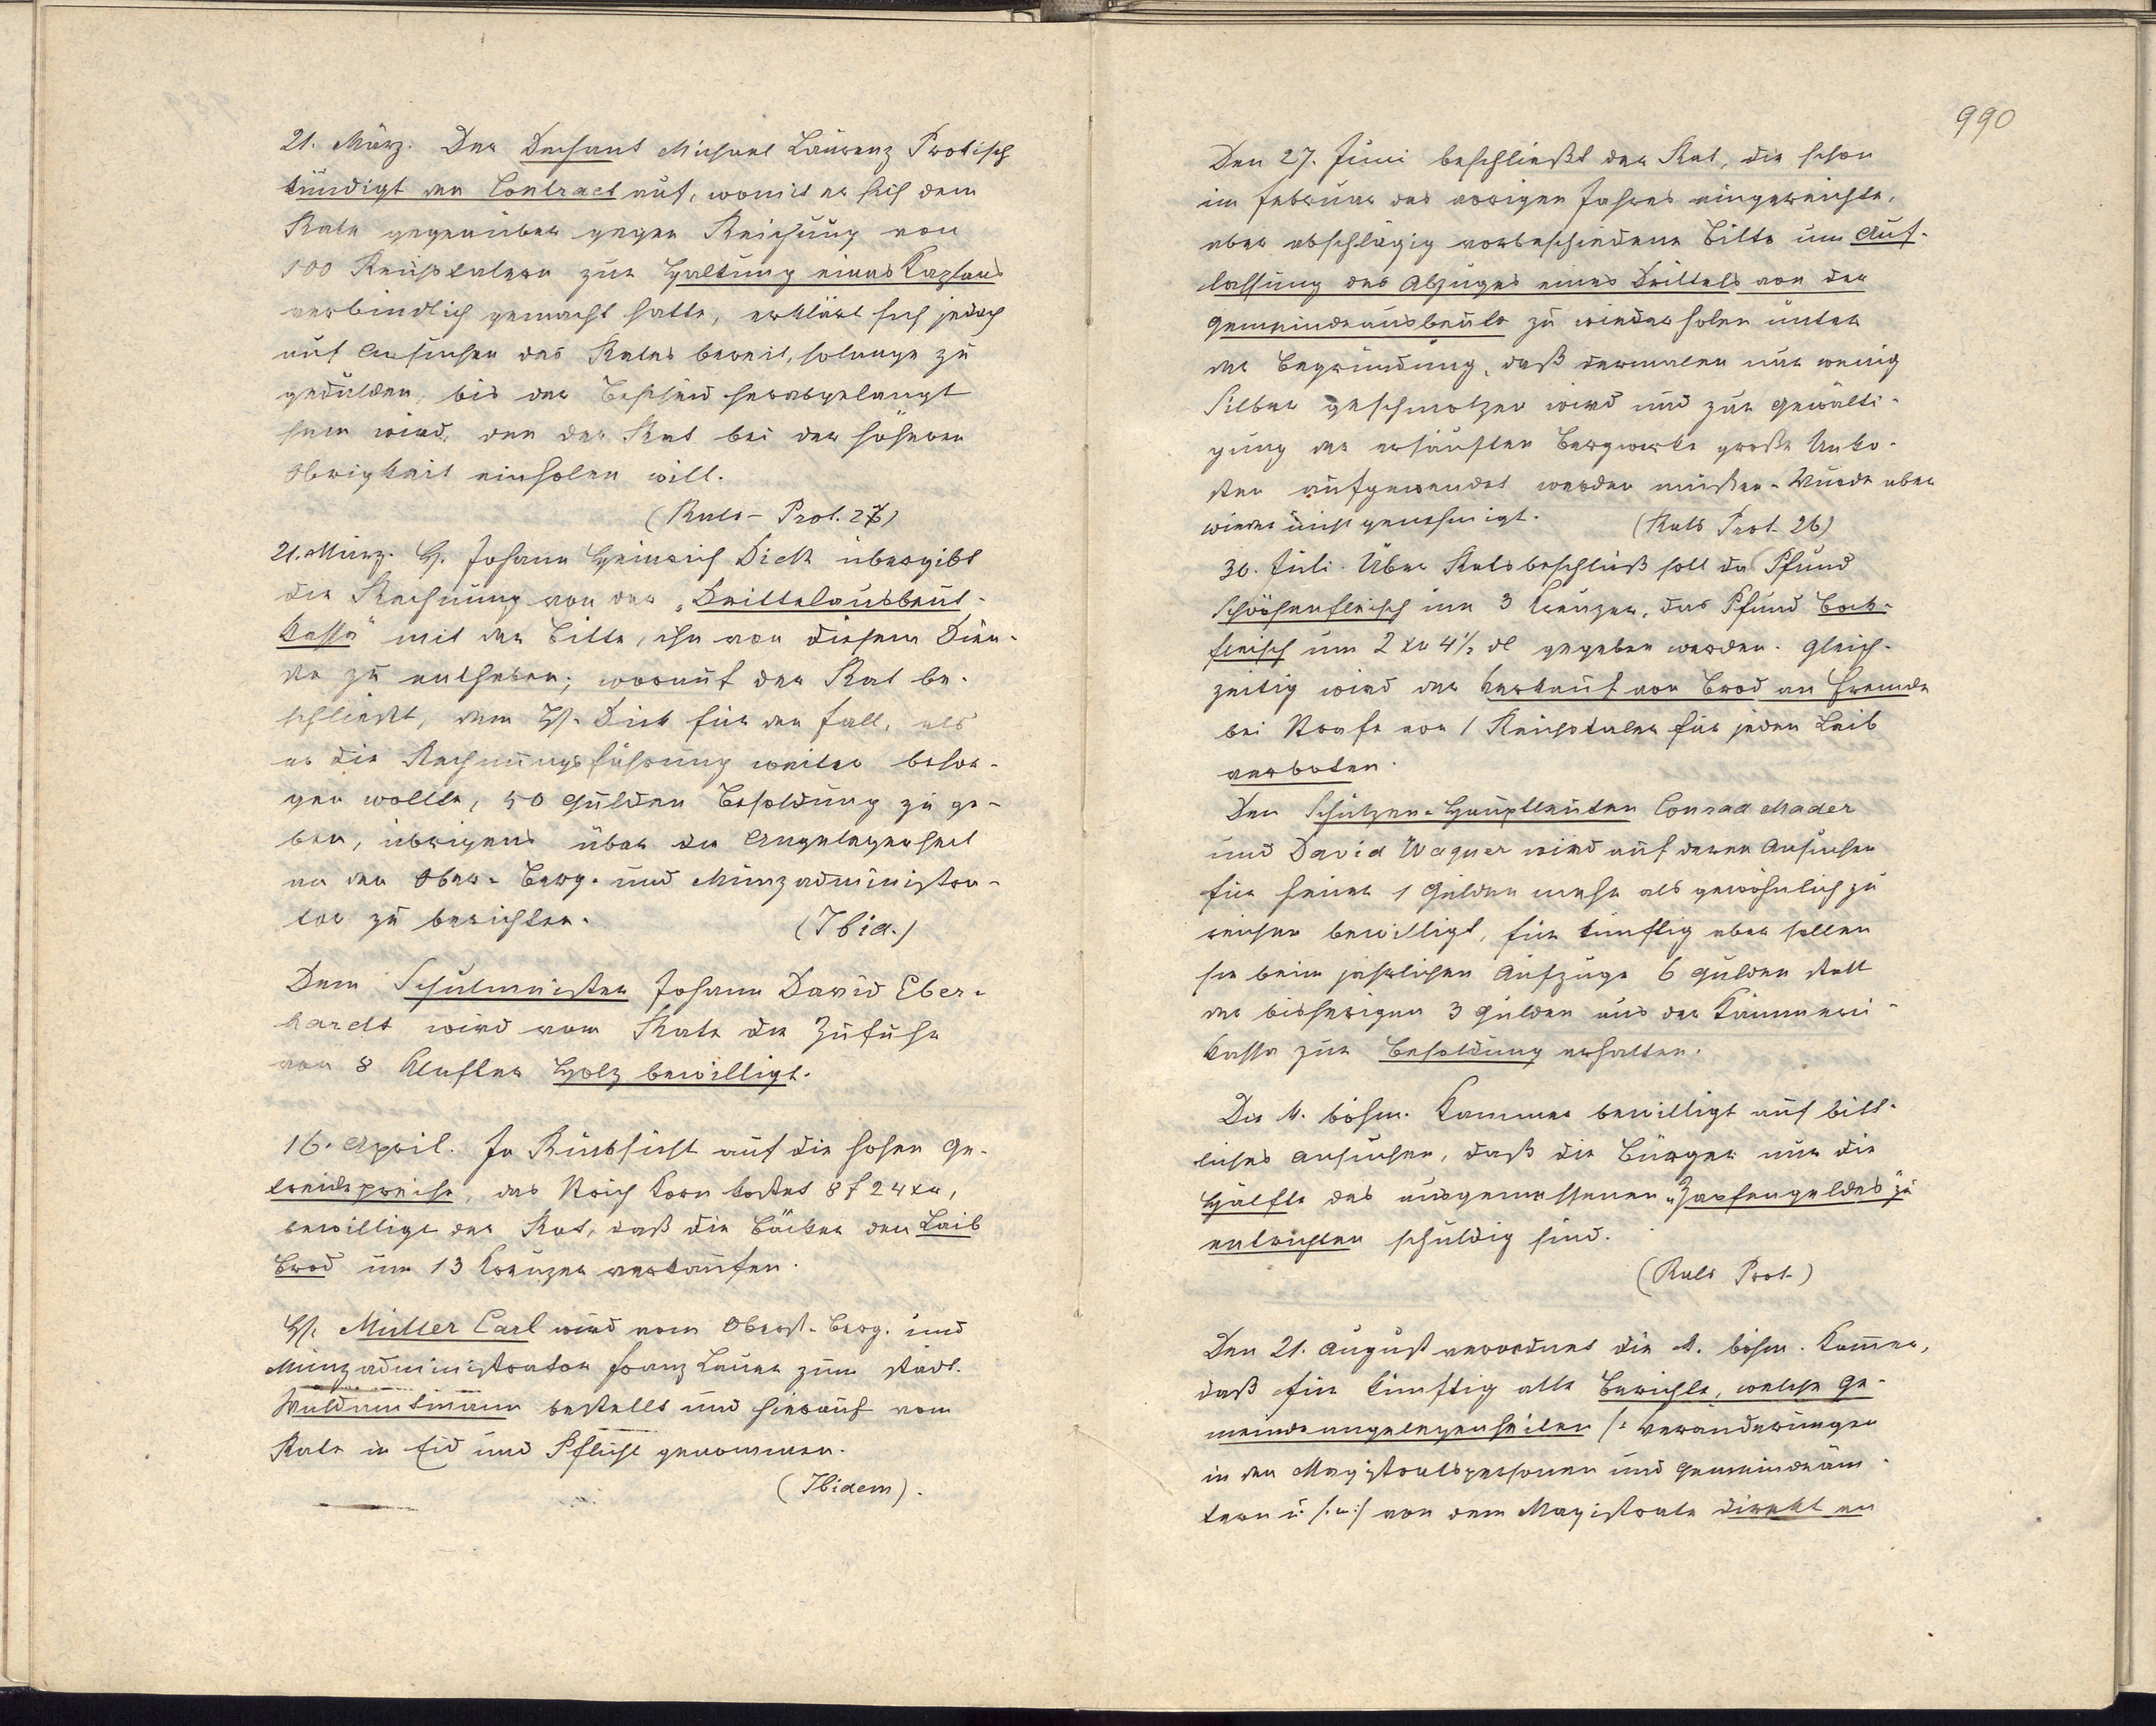 21. März. Der Dechant Michael Laurenz Protisch
kündigt den Contract auf, womit er sich dem
Rate gegenüber gegen Reichung von
100 Reichstalern zur Haltung eines Kaplans
verbindlich gemacht hatte, erklärt sich jedoch
auf Ansuchen des Rates bereit, solange zu
gedulden, bis der Bescheid herabgelangt
sein wird, den der Rat bei der höheren
Obrigkeit einholen will.
(Rats-Prot. 26)
21. März. H. Johann Heinrich Dick übergibt
die Rechnung von der „Drittelausbeut-
Kassa" mit der Bitte, ihn von diesem Dien-
ste zu entheben; worauf der Rat be-
schließt, dem H. Dick für den Fall, als
er die Rechnungsführung weiter besor-
gen wollte, 50 Gulden Besoldung zu ge-
ben, übrigens über die Angelegenheit
an den Ober-Berg- und Münzadministra-
tor zu berichten. (Ibid.)
Dem Schulmeister Johann David Eber-
hardt wird vom Rate die Zufuhr
von 8 Klafter Holz bewilligt.
16. April. In Rücksicht auf die hohen Ge-
treidepreise, das Strich Korn kostet 8 f 24 xr,
bewilligt der Rat, daß die Bäcker den Laib
Brod um 13 Kreuzer verkaufen.
H. Müller Carl wird vom Oberst-Berg- und
Münzadministrator Franz Lauer zum städt.
Waldamtmann bestellt und hierauf vom
Rate in Eid und Pflicht genommen.
(Ibidem).
990
Den 27. Juni beschließt der Rat, die schon
im Februar des vorigen Jahres eingereichte,
aber abschlägig verbeschiedene Bitte um Auf-
lassung des Abzuges eines Drittels von der
Gemeindeausbeute zu wiederholen unter
der Begründung, daß dermalen nur wenig
Silber geschmolzen wird und zur Gewälti-
gung der ersäuften Bergwerke große Unko-
sten aufgewendet werden müßten. Wurde aber
wieder nicht genehmigt. (Rats Prot. 26)
30. Juli. Über Ratsbeschluß soll das Pfund
Schöpsenfleisch um 3 Kreuzer, das Pfund Bock-
fleisch um 2 xr 4½ dl gegeben werden. Gleich-
zeitig wird der Verkauf von Brod an Fremde
bei Strafe von 1 Reichstaler für jeden Laib
verboten.
Den Schützen-Hauptleuten Conrad Mader
und David Wagner wird auf deren Ansuchen
für heuer 1 Gulden mehr als gewöhnlich zu
reichen bewilligt, für künftig aber sollen
sie beim jährlichen Aufzuge 6 Gulden statt
der bisherigen 3 Gulden aus der Kämmerei-
Kassa zur Besoldung erhalten.
Die k. böhm. Kammer bewilligt auf bitt-
liches Ansuchen, daß die Bürger nur die
Hälfte des ausgemessenen „Zapfengeldes zu
entrichten schuldig sind.
(Rats Prot.)
Den 21. August verordnet die k. böhm. Kammer,
daß für künftig alle Berichte, welche Ge-
meindeangelegenheiten /: Veränderungen
in den Magistratspersonen und Gemeindeäm-
tern u. s. w :/ von dem Magistrate direkt an